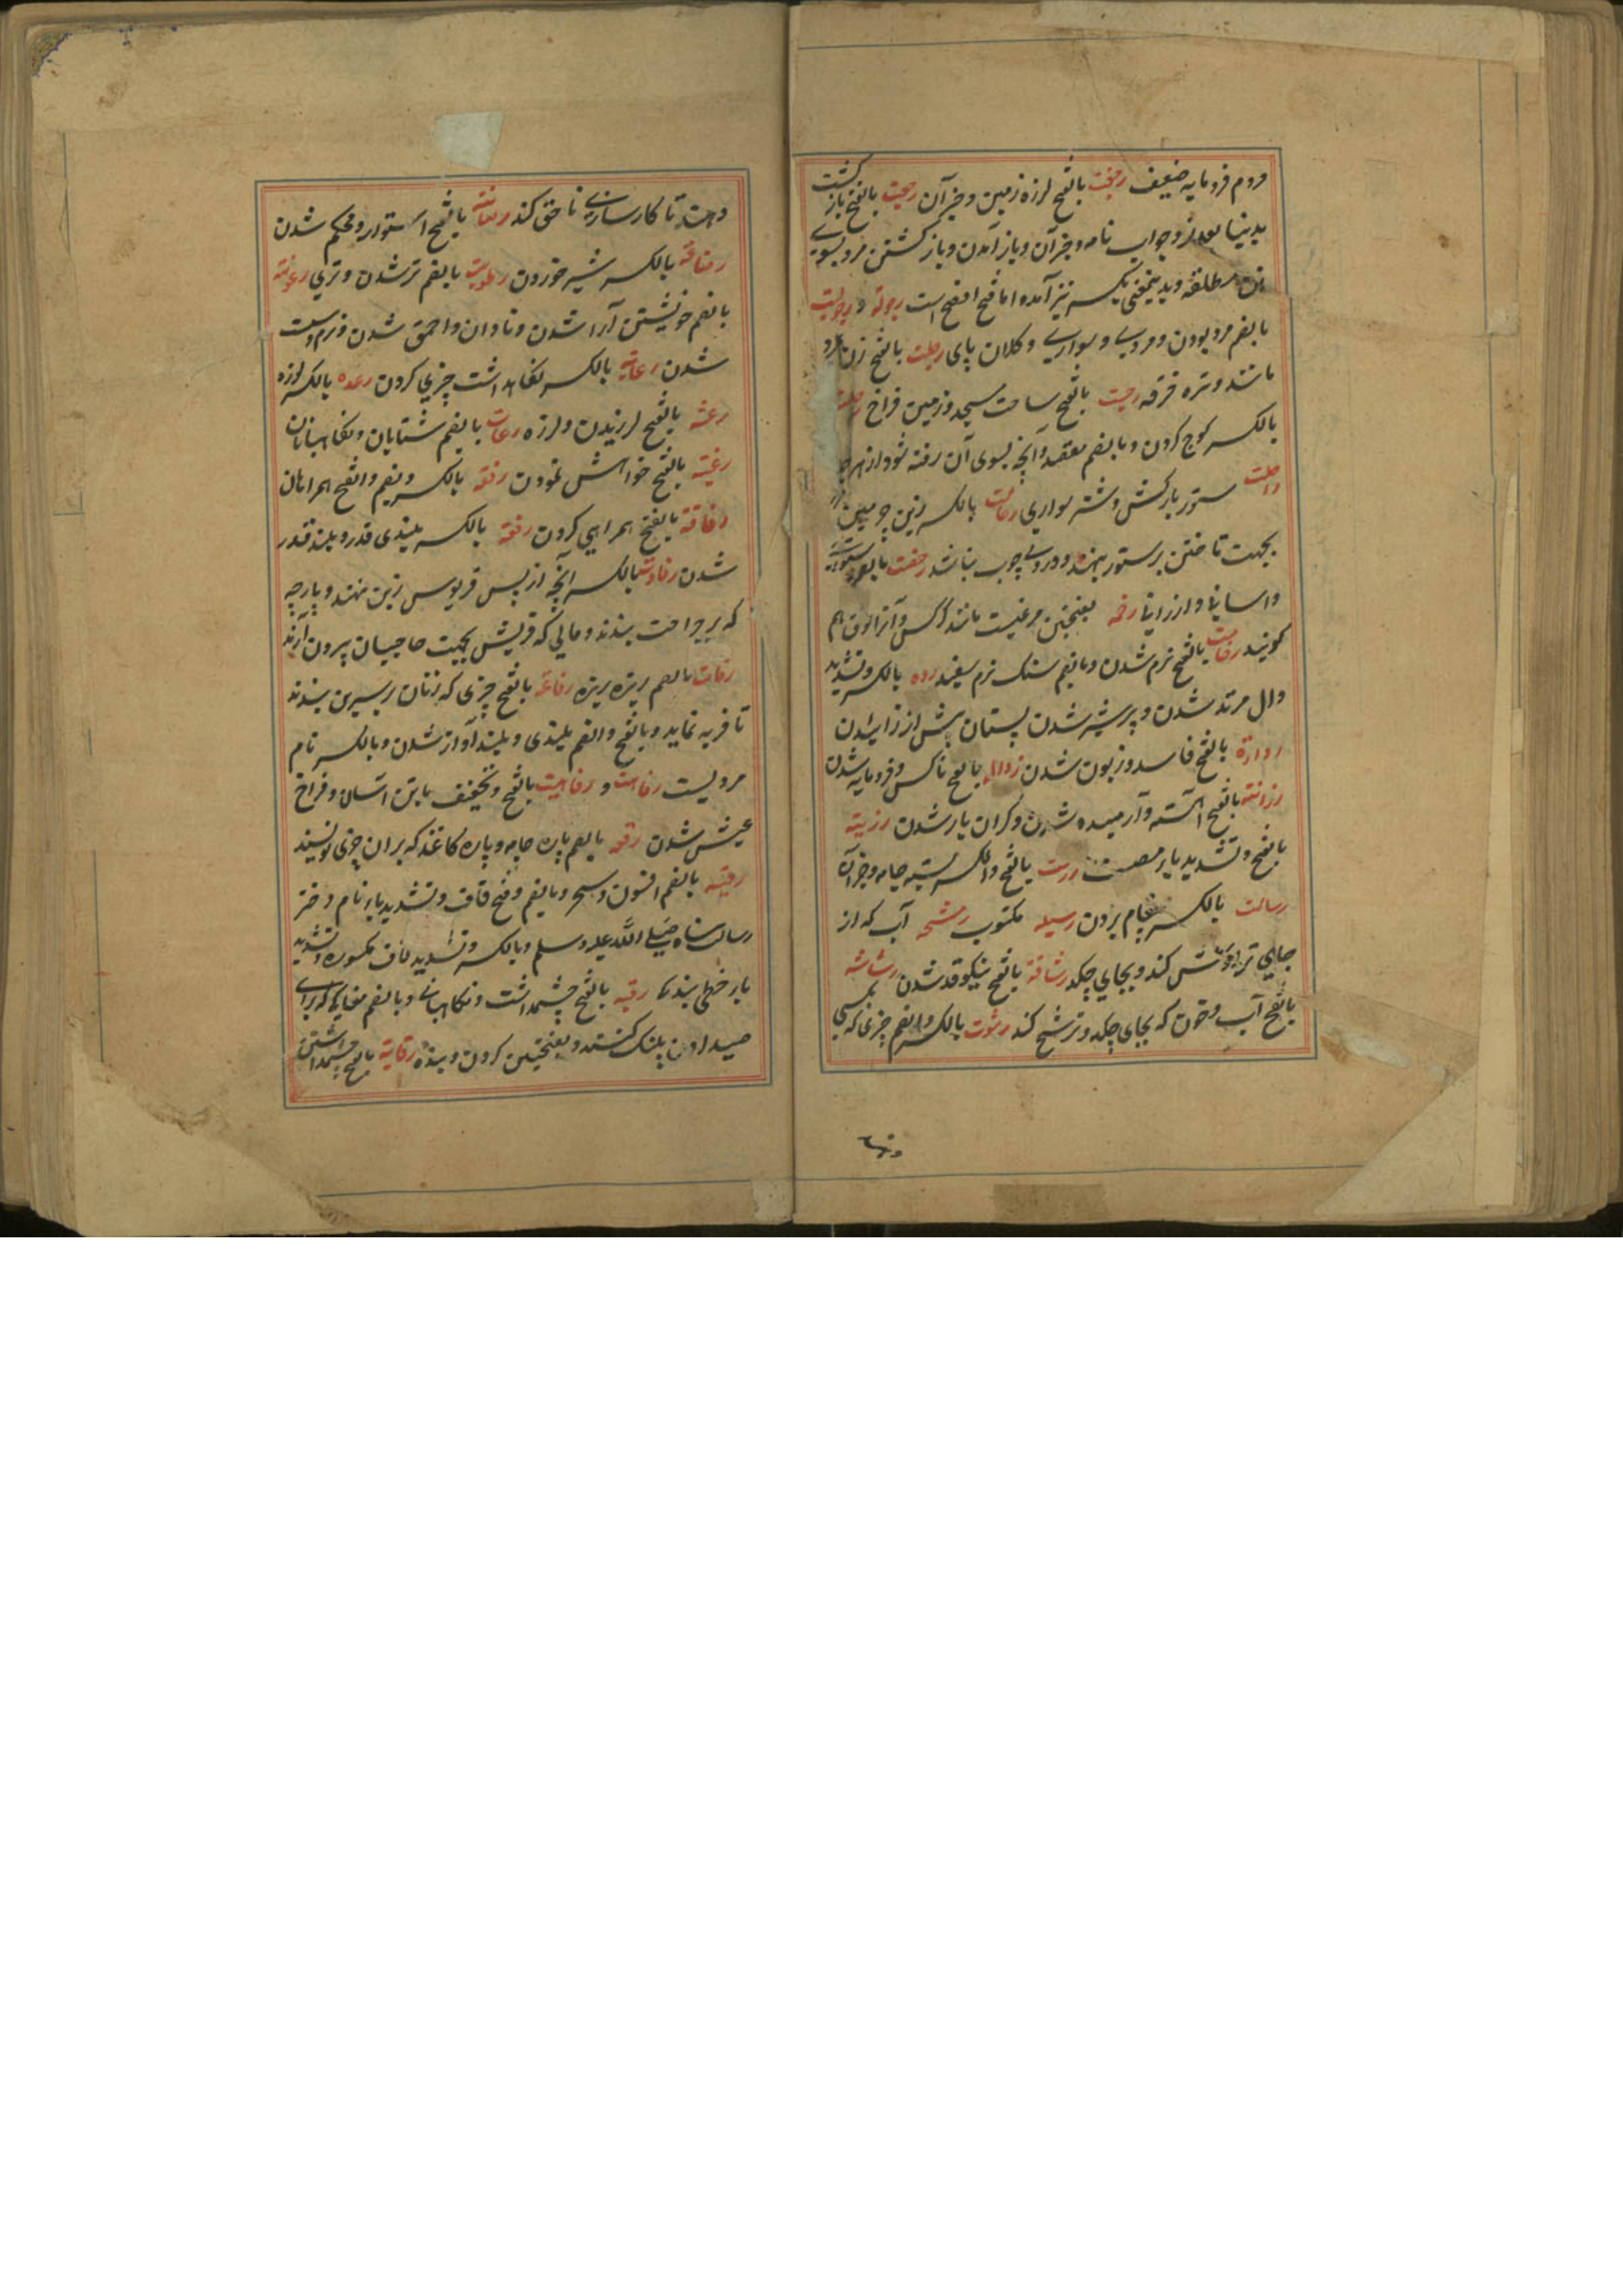 مردم فرومایه ضعیف رجفت بالفتح لرزه زمین و جز آن رجعت بالفتح باز گشت
بدنیا بعد از و جواب نامه و جز آن و باز آمدن و باز گشتن مرد بسوی
زن مطلقه و بدینمعنی بکسر نیز آمده اما فتح افصح است رجولة و رجولیت
بالضم مرد بودن و مردی و سواری و کلان پای رجلت بالفتح زن مرد
مانند و تره خرفه رحبت بالفتح ساحت مسجد و زمین فراخ رحلة
بالکسر کوچ کردن و بالضم مقصد و آنچه بسوی آن رفته شود از هر جا
راحلت ستور بارکش و شتر سواری رحالت بالکسر زین چرمین
بجهت تاختن بر ستور نهند و دروی چوب نباشد رخصت بالضم
و اسانی و ارزانی رخمه بفتحتین مرغیست مانند کرکس و آنرا نوق هم
کویند رخامت بالفتح نرم شدن و بالضم سنک نرم سفید رده بالکسر و تشدید
دال مرتد شدن و پر شیر شدن پستان پیش از زائیدن
رداءة بالفتح فاسد و زبون شدن رذالة بالفتح ناکس و فرومایه شدن
رزانت بالفتح آهسته و آرمیده شدن و کران بار شدن رزیة
بالفتح و تشدید یاء مصیبت رزمت بالفتح والکسر بسته جامه و جز آن
رسالت بالکسر پیغام بردن رسیله مکتوب رشحه آب که از
جایی تراوش کند و بجایی چکد رشاقة بالفتح نیکو قد شدن رشاشه
بالفتح آب و خون که بجای چکد و ترشح کند رشوت بالکسر والضم چیزی که بکسی
دهند
دهند تا کارسازی ناحق کند رصانت بالفتح استوار و محکم شدن
رضاعة بالکسر شیر خوردن رطوبت بالضم تر شدن و تری رعونة
بالضم خویشتن آرا شدن و نادان و احمق شدن و نرم و سست
شدن رعایت بالکسر نکاهداشت چیزی کردن رعده بالکسر لرزه
رعشه بالفتح لرزیدن و لرزه رعات بالضم شتابان و نکاهبانان
رغبة بالفتح خواهش نمودن رفقه بالکسر و بضم و الفتح همراهان
رفاقة بالفتح همراهی کردن رفعة بالکسر بلندی قدر و بلند قدر
شدن رفادت بالکسر آنچه از پس قربوس زین نهند و پارچه
که بر جراحت بندند و مالی که قریش بجهت حاجیان بیرون آرند
رفات بالضم ریزه ریزه رفاعة بالفتح چیزی که زنان بر سرین بندند
تا فربه نماید و بالفتح والضم بلندی و بلند آواز شدن و بالکسر نام
مردیست رفاهت و رفاهیت بالفتح و تخفیف یا تن آسان و فراخ
عیش شدن رقعه بالضم پاره جامه و پاره کاغذ که بران چیزی نویسند
رقیه بالضم افسون و سحر و بالضم و فتح قاف و تشدید یاء نام دختر
رسالت پناه صلی الله علیه و سلم و بالکسر و تشدید قاف مکسوره و تشدید
یاء خطی بندکی رقبه بالفتح چشمداشت و نکاهبانی و بالضم مغاکی که برای
صید کردن پلنک کنند و بفتحتین کردن و بنده رقابة بالفتح چشم داشتن